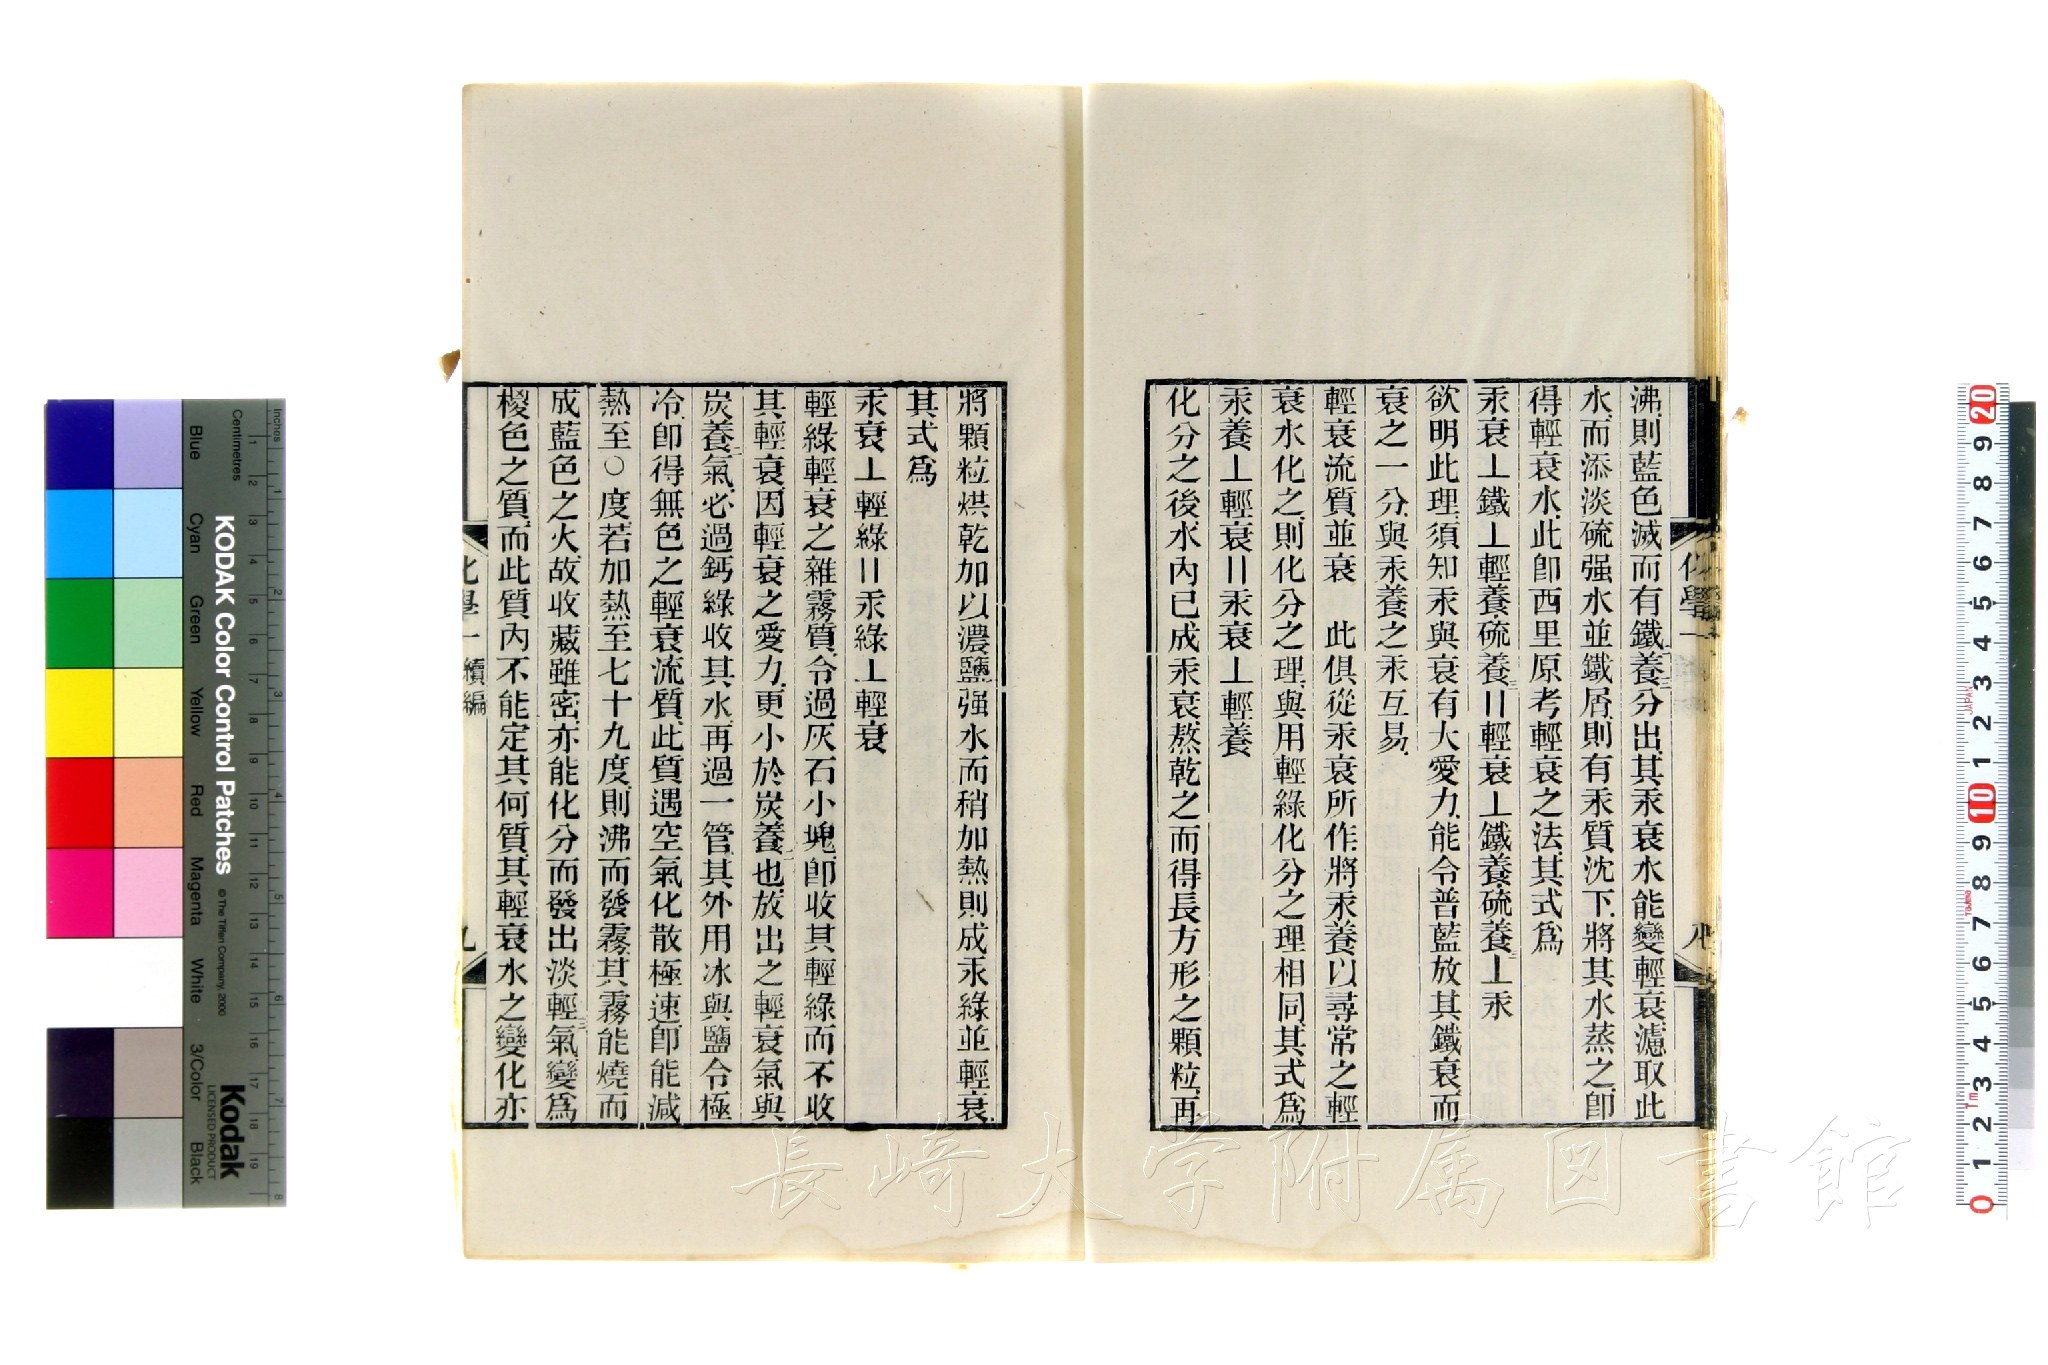 沸則藍色滅而有鐵養三分出其汞衰水能變輕衰濾取此
水而添淡硫强水並鐵屑則有汞質沈下將其水蒸之卽
得輕衰水此卽西里原考輕衰之法其式爲
汞衰⊥鐵⊥輕養硫養三〢輕衰⊥鐵養硫養三⊥汞
欲明此理須知汞與衰有大愛力能令普藍放其鐵衰而
衰之一分與汞養之汞互易
輕衰流質並衰　此俱從汞衰所作將汞養以尋常之輕
衰水化之則化分之理與用輕綠化分之理相同其式爲
汞養⊥輕衰〢汞衰⊥輕養
化分之後水內已成汞衰熬乾之而得長方形之顆粒再
化學一
八
將顆粒烘乾加以濃鹽强水而稍加熱則成汞綠並輕衰
其式爲
汞衰⊥輕綠〢汞綠⊥輕衰
輕綠輕衰之雜霧質令過灰石小塊卽收其輕綠而不收
其輕衰因輕衰之愛力更小於炭養二也放出之輕衰氣與
炭養二氣必過鈣綠收其水再過一管其外用冰與鹽令極
冷卽得無色之輕衰流質此質遇空氣化散極速卽能減
熱至〇度若加熱至七十九度則沸而發霧其霧能燒而
成藍色之火故收藏雖密亦能化分而發出淡輕三氣變爲
椶色之質而此質內不能定其何質其輕衰水之變化亦
化學一 續編
九
KODAK Color Control Patches
© The Tiffen Company, 2000
Kodak
LICENSED PRODUCT
Inches
Centimetres
Blue
Cyan
Green
Yellow
Red
Magenta
White
3/Color
Black
長崎大学附属図書館
JAPAN